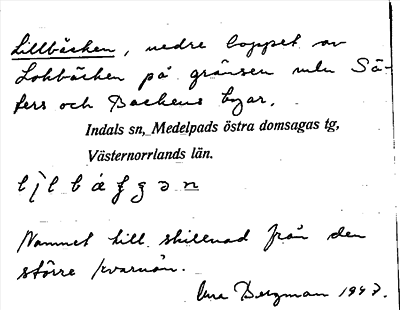 Lillbäcken, nedre loppet av
Lobbäcken på gränsen mln Sä-
ters och Backens byar.
Indals sn, Medelpads östra domsagas tg,
Västernorrlands län.
Namnet till skillnad från den
större kvarnån.
Bergman 1947.